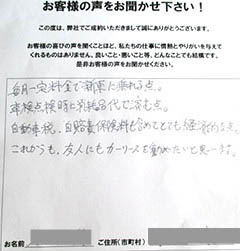 お客様の声をお聞かせ下さい!
この度は、弊社でご成約いただきまして誠にありがとうございます。
お客様の喜びの声を聞くことほど、私たちの仕事に情熱とやりがいを与えて
くれるものはありません。良いこと・悪いこと等、どんなことでも結構です。
是非お客様の声をお聞かせください。
毎月一定料金で新車に乗れる点。
車検点検時に消耗品代で済む点。
自動車税、自賠責保険料も含めてとても経済的な点。
これからも、友人にもカーリースを勧めたいと思います。
お名前
ご住所(市町村)